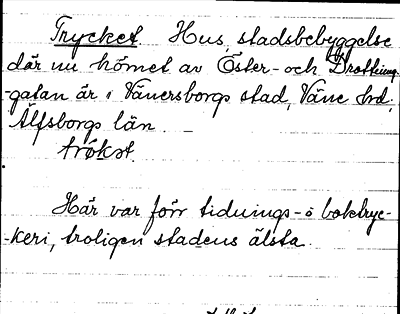 Trycket. Hus, stadsbebyggelse
där nu hörnet av Öster- och Drottning-
-gatan är i Vänersborgs stad, Väne hd,
Älfsborgs län.
trøkət
Här var förr tidnings- o boktryc-
-keri, troligen stadens älsta.